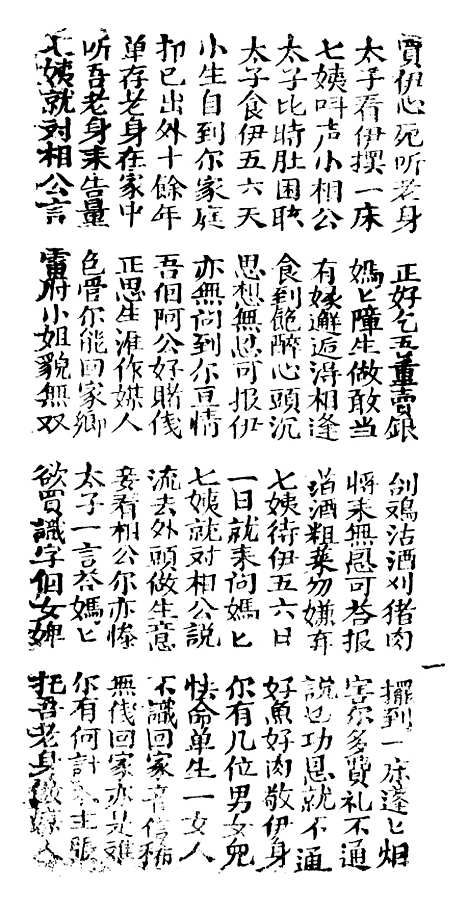 賈伊心宛听老身
正好乞吾董賣銀
刣鴉沽酒刈猪肉
擺到一床蓬匕烟
太子看伊撰一床
媽匕障生做敢当
將来無恩可答报
害尔多費礼不通
七姨叫声小相公
有緣邂逅得相逢
酒粗菜勿嫌弃
說乜功恩就不通
太子比時肚困
食到飽醉心頭沉
七姨待伊五六日
好魚好肉敬伊身
太子食伊五六天
思想無恩可报伊
一日就来问媽匕
尔有几位男女兒
小生自到尔家庭
亦無问到尔亘情
七姨就对相公說
命单生一女人
已出外十餘年
吾個阿公好賭伐
流去外頭做生意
不識回家音信稀
单存老身在家中
正思生涯作媒人
妾看相公尔亦
無伐回家亦是
听吾老身来告量
包管尔能回家鄉
太子一言答媽匕
尔有何計主張
七姨就对相公言
雷府小姐貌無双
欲買識字個女婢
托吾老身做媒人
一